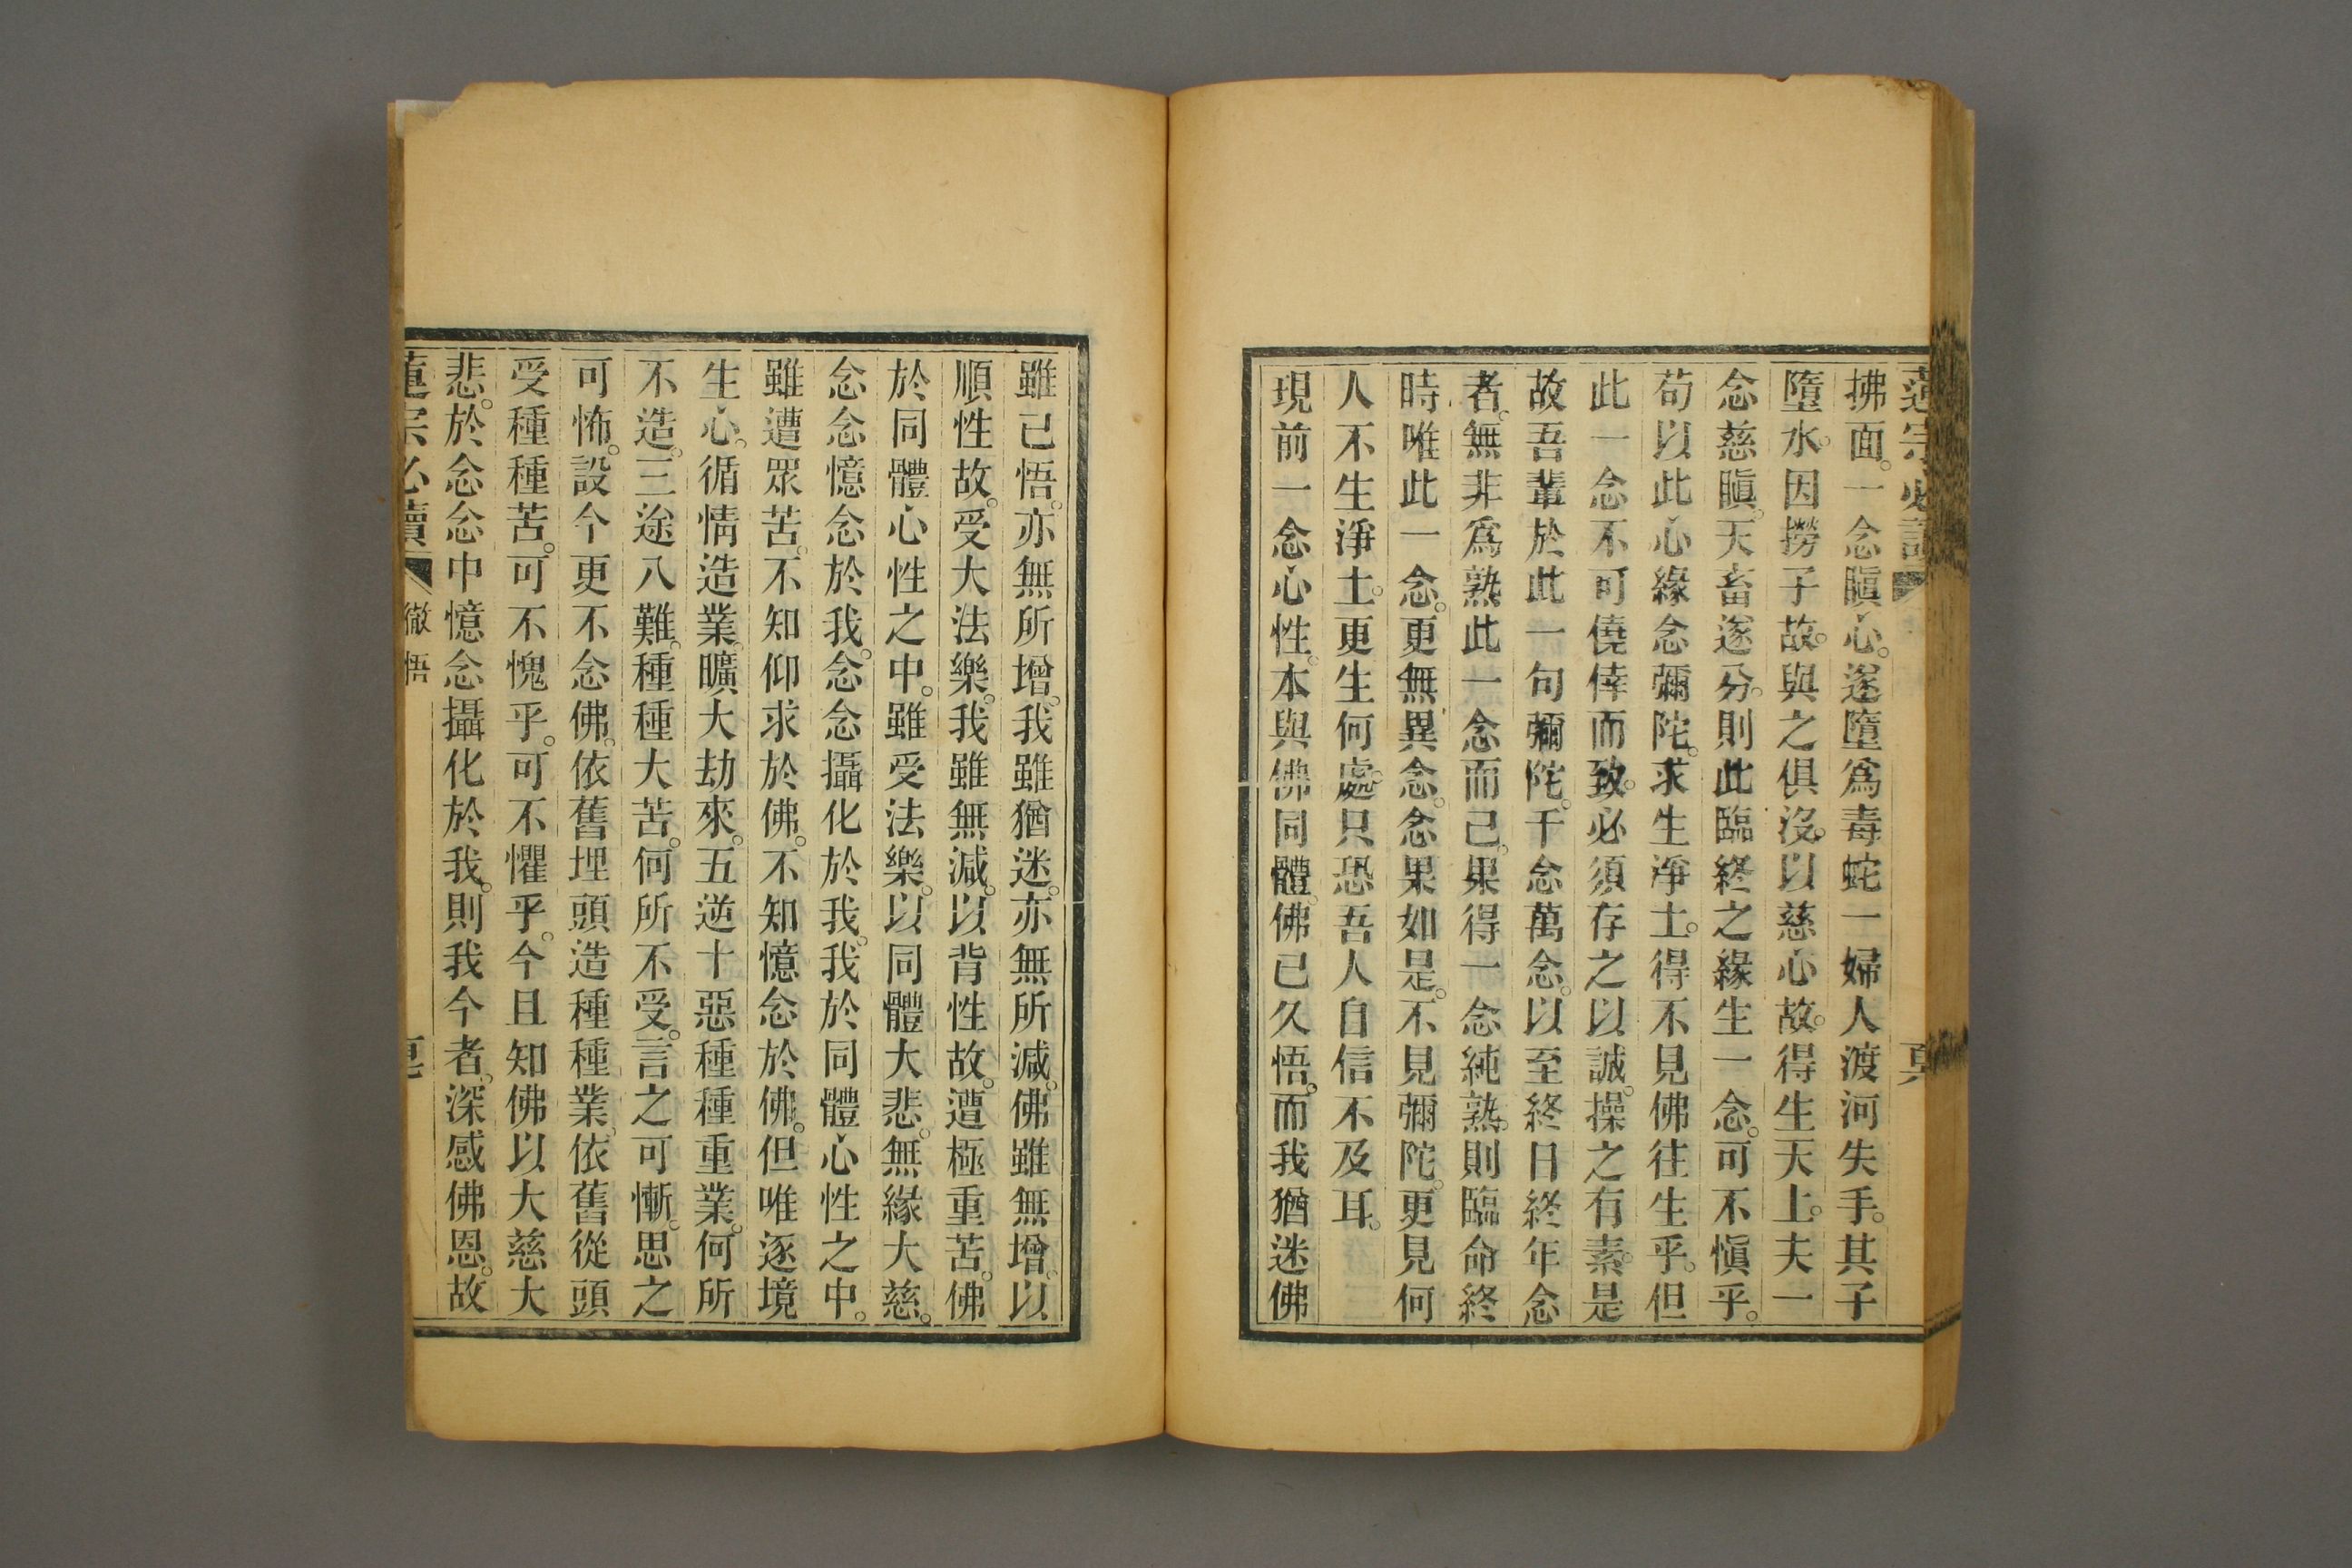 蓮宗必讀
拂面。一念瞋心。遂墮爲毒蛇一婦人渡河失手。其子
墮水。因撈子故。與之俱沒。以慈心故。得生天上。夫一
念慈瞋。天畜遂分。則此臨終之緣生一念。可不愼乎。
苟以此心緣念彌陀。求生淨土。得不見佛往生乎。但
此一念不可僥倖而致。必須存之以誠。操之有素。是
故吾輩於此一句彌陀。千念萬念。以至終日終年念
者。無非爲熟此一念而已。果得一念純熟。則臨命終
時唯此一念。更無異念。念果如是。不見彌陀。更見何
人不生淨土。更生何處。只恐吾人自信不及耳。
現前一念心性。本與佛同體。佛已久悟。而我猶迷佛
雖已悟。亦無所增。我雖猶迷。亦無所減。佛雖無增。以
順性故。受大法樂。我雖無減。以背性故。遭極重苦。佛
於同體心性之中。雖受法樂。以同體大悲。無緣大慈。
念念憶念於我。念念攝化於我。我於同體心性之中。
雖遭眾苦。不知仰求於佛。不知憶念於佛。但唯逐境
生心。循情造業。曠大劫來。五逆十惡種種重業。何所
不造。三途八難。種種大苦。何所不受。言之可慚。思之
可怖。設今更不念佛。依舊埋頭造種種業。依舊從頭
受種種苦。可不愧乎。可不懼乎。今且知佛以大慈大
悲。於念念中憶念攝化於我。則我今者。深感佛恩。故
蓮宗必讀 徹悟